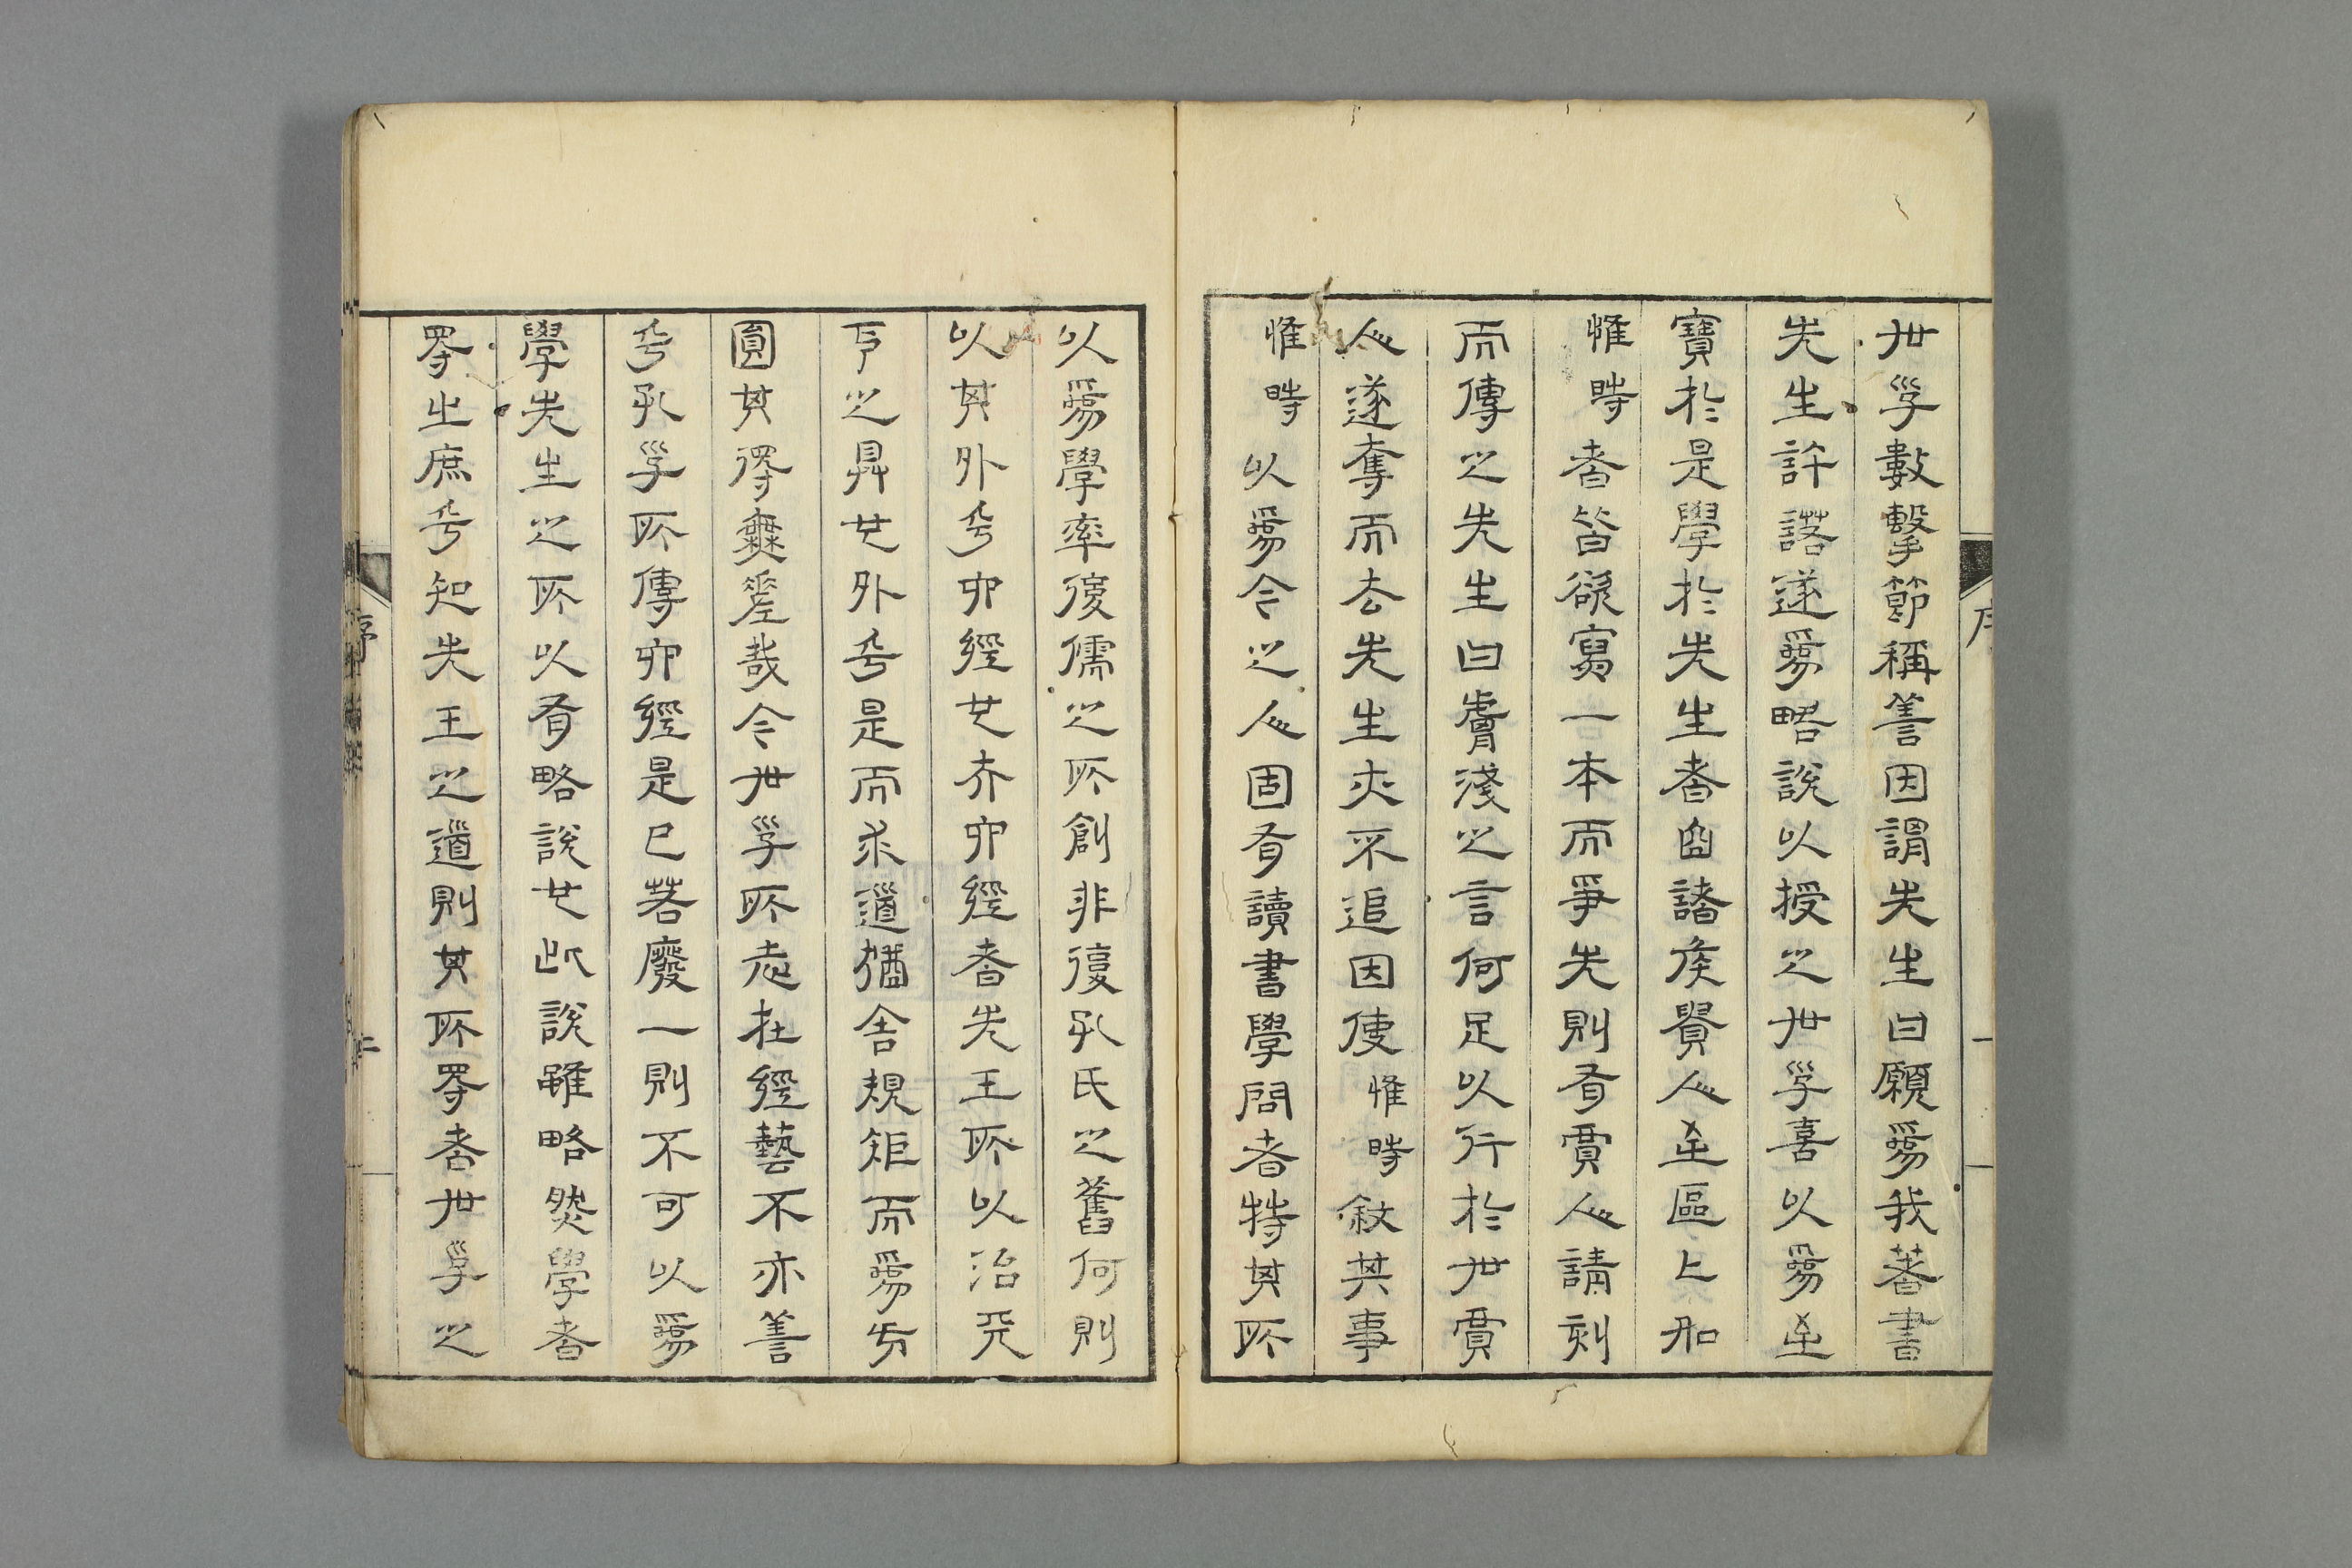 世子數擊節稱善因謂先生曰願爲我著書
先生許諾遂爲略說以授之世子喜以爲至
寶於是學於先生者自諸侯賢人至區上和
惟時者皆欲寫一本而爭先則有賈人請刻
而傳之先生曰膚淺之言何足以行於世賈
人遂奪而去先生夫不追因使惟時敘其事
惟時以爲今之人固有讀書學問者特其所
以爲學率後儒之所創非復孔氏之舊何則
以其外乎六經也夫六經者先王所以治天
下之具也外乎是而求道猶舍規矩而爲方
圓其得與差哉今世子所志在經藝不亦善
乎孔子所傳六經是已若廢一則不可以爲
學先生之所以有略說也此說雖略然學者
得之庶乎知先王之道則其所得者世子之
序
二